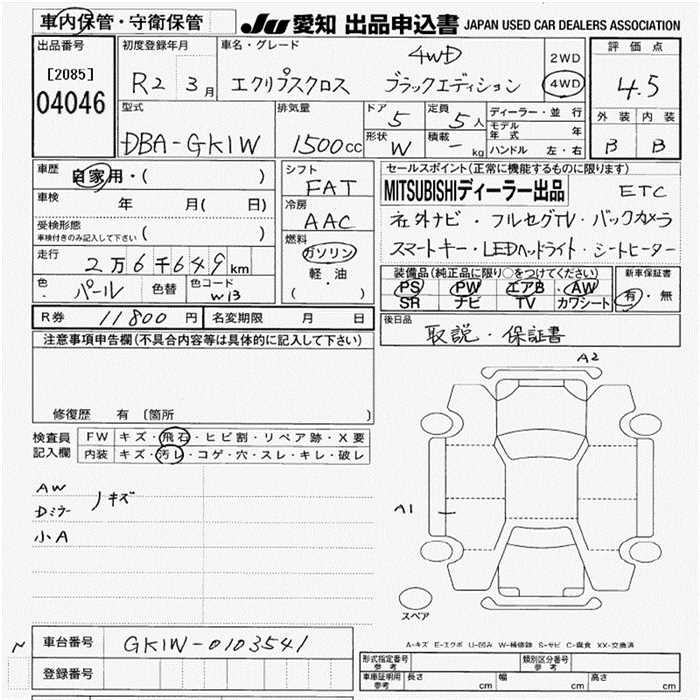 車内保管・守衛保管
JU 愛知 出品申込書 JAPAN USED CAR DEALERS ASSOCIATION
出品番号
[2085]
04046
初度登録年月
R2 3月
車名・グレード
4WD
エクリプスクロス ブラックエディション
2WD
4WD
評価点
4.5
外装 内装
B B
型式
DBA-GK1W
排気量
1500cc
ドア 5
定員 5人
形状 W
積載 - kg
ディーラー・並行
モデル年式 年
ハンドル 左・右
車歴
自家用・( )
車検 年 月( 日)
受検形態
車検付きのみ記入して下さい ( )
走行
2万6千649km
色 パール 色替 色コード W13
シフト
FAT
冷房
AAC
燃料
ガソリン
軽・油
( )
セールスポイント(正常に機能するものに限ります)
MITSUBISHIディーラー出品 ETC
社外ナビ・フルセグTV・バックカメラ
スマートキー・LEDヘッドライト・シートヒーター
装備品(純正品に限り○をつけてください) 新車保証書
PS PW エアB AW
SR ナビ TV カワシート
有・無
R券 11800円 名変期限 月 日
後日品
取説・保証書
注意事項申告欄(不具合内容等は具体的に記入して下さい)
修復歴 有 〔箇所 〕
検査員記入欄
FW キズ・飛石・ヒビ割・リペア跡・X要
内装 キズ・汚レ・コゲ・穴・スレ・キレ・破レ
AW
Dミラー ノキズ
小A
A2
A1
スペア
A-キズ E-エクボ U-凹み W-補修跡 S-サビ C-腐食 XX-交換済
車台番号 GK1W-0103541
登録番号
形式指定番号 参考
類別区分番号 参考
車庫証明用 参考 長さ cm 幅 cm 高さ cm